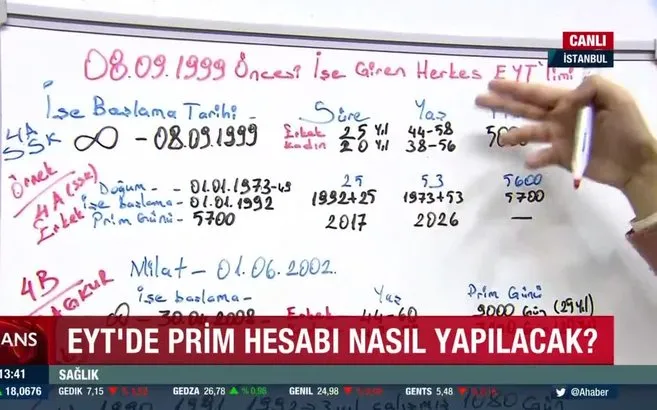 CANLI
İSTANBUL
08.09.1999 Öncesi İşe Giren Herkes EYT'limi
İşe Başlama Tarihi - Süre Yaş
4A SSK ∞ - 08.09.1999 Erkek 25 Yıl 44-58
Kadın 20 Yıl 38-56
Örnek
4A (SSK) Erkek
Doğum - 01.01.1973-49 25 53 5600
İşe başlama - 01.01.1992 1992+25 1973+53 5700
Prim Günü - 5700 2017 2026 —
4B
Milat - 01.06.2002.
İşe başlama - Yaş Prim Günü
Erkek 44-60 9000 Gün (25 Yıl)
ANS
EYT'DE PRİM HESABI NASIL YAPILACAK?
13:41 SAĞLIK
18,0676 GEDIK 7,15 GEDZA 26,78 % 0.98 GENIL 24,98 GENTS 5,48 @Ahaber